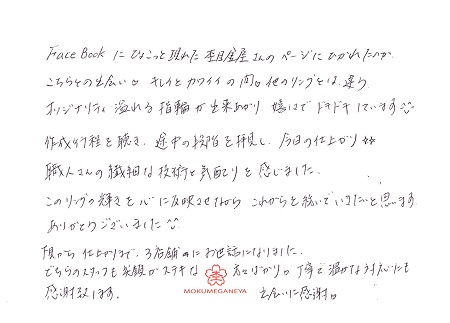 Face Book にひょこっと現れた 杢目金屋 さんの ページに ひかれたのが
こちらとの出会い。 キレイと カワイイの間。他のリングとは 違う
オリジナリティ 溢れる 指輪が 出来あがり 嬉しさで ドキドキ しています
作成行程を 聴き、途中の段階を 拝見し、今日の仕上がり
職人さんの 繊細な 技術と 気配りを 感じました。
このリングの輝きを 心に 反映させながら これからを 紡いでいきたいと 思います
ありがとうございました
仕上がりまで、3店舗の にお世話になりました。
どちらのスタッフも 笑顔が ステキな 方ばかり。丁寧で 温かな 対応にも
感謝致します。 出会いに感謝。
MOKUMEGANEYA